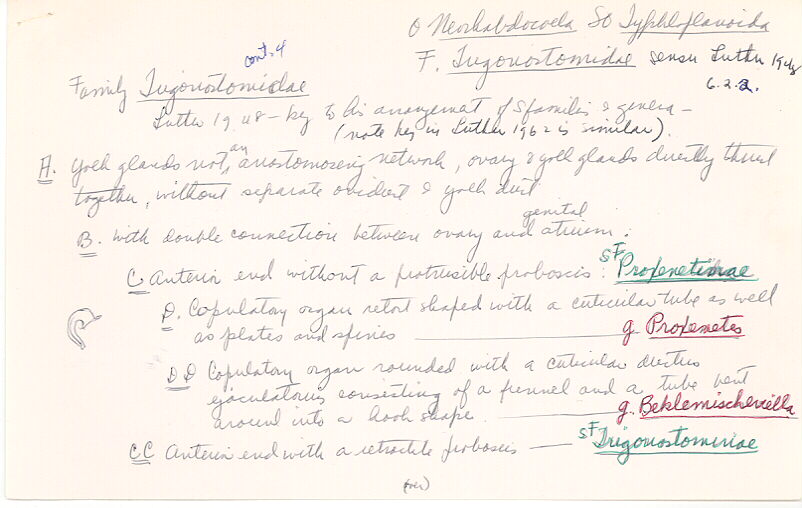 O Neorhabdocoela SO Typhloplanoida
cont. 4
F. Trigonostomidae sensu Luther 1948
6.2.2.
Family Trigonostomidae
Luther 1948 - key to his arrangemat of Sfamilies & genera -
(note key in Luther 1962 is similar).
A. Yolk glands not an anastomosing network, ovary & yolk glands directly thrust
together, without separate oviduct & yolk duct
B. With double connection between ovary and genital atrium.
C Anterior end without a protrusible proboscis: SF Proxenetinae
D. Copulatory organ retort shaped with a cuticular tube as well
as plates and spines g Proxenetes
DD Copulatory organ rounded with a cuticular ductus
ejaculatorius consisting of a funnel and a tube bent
around into a hook shape g. Beklemischeviella
CC Anterior end with a retractile proboscis SF Trigonostominae
(over)